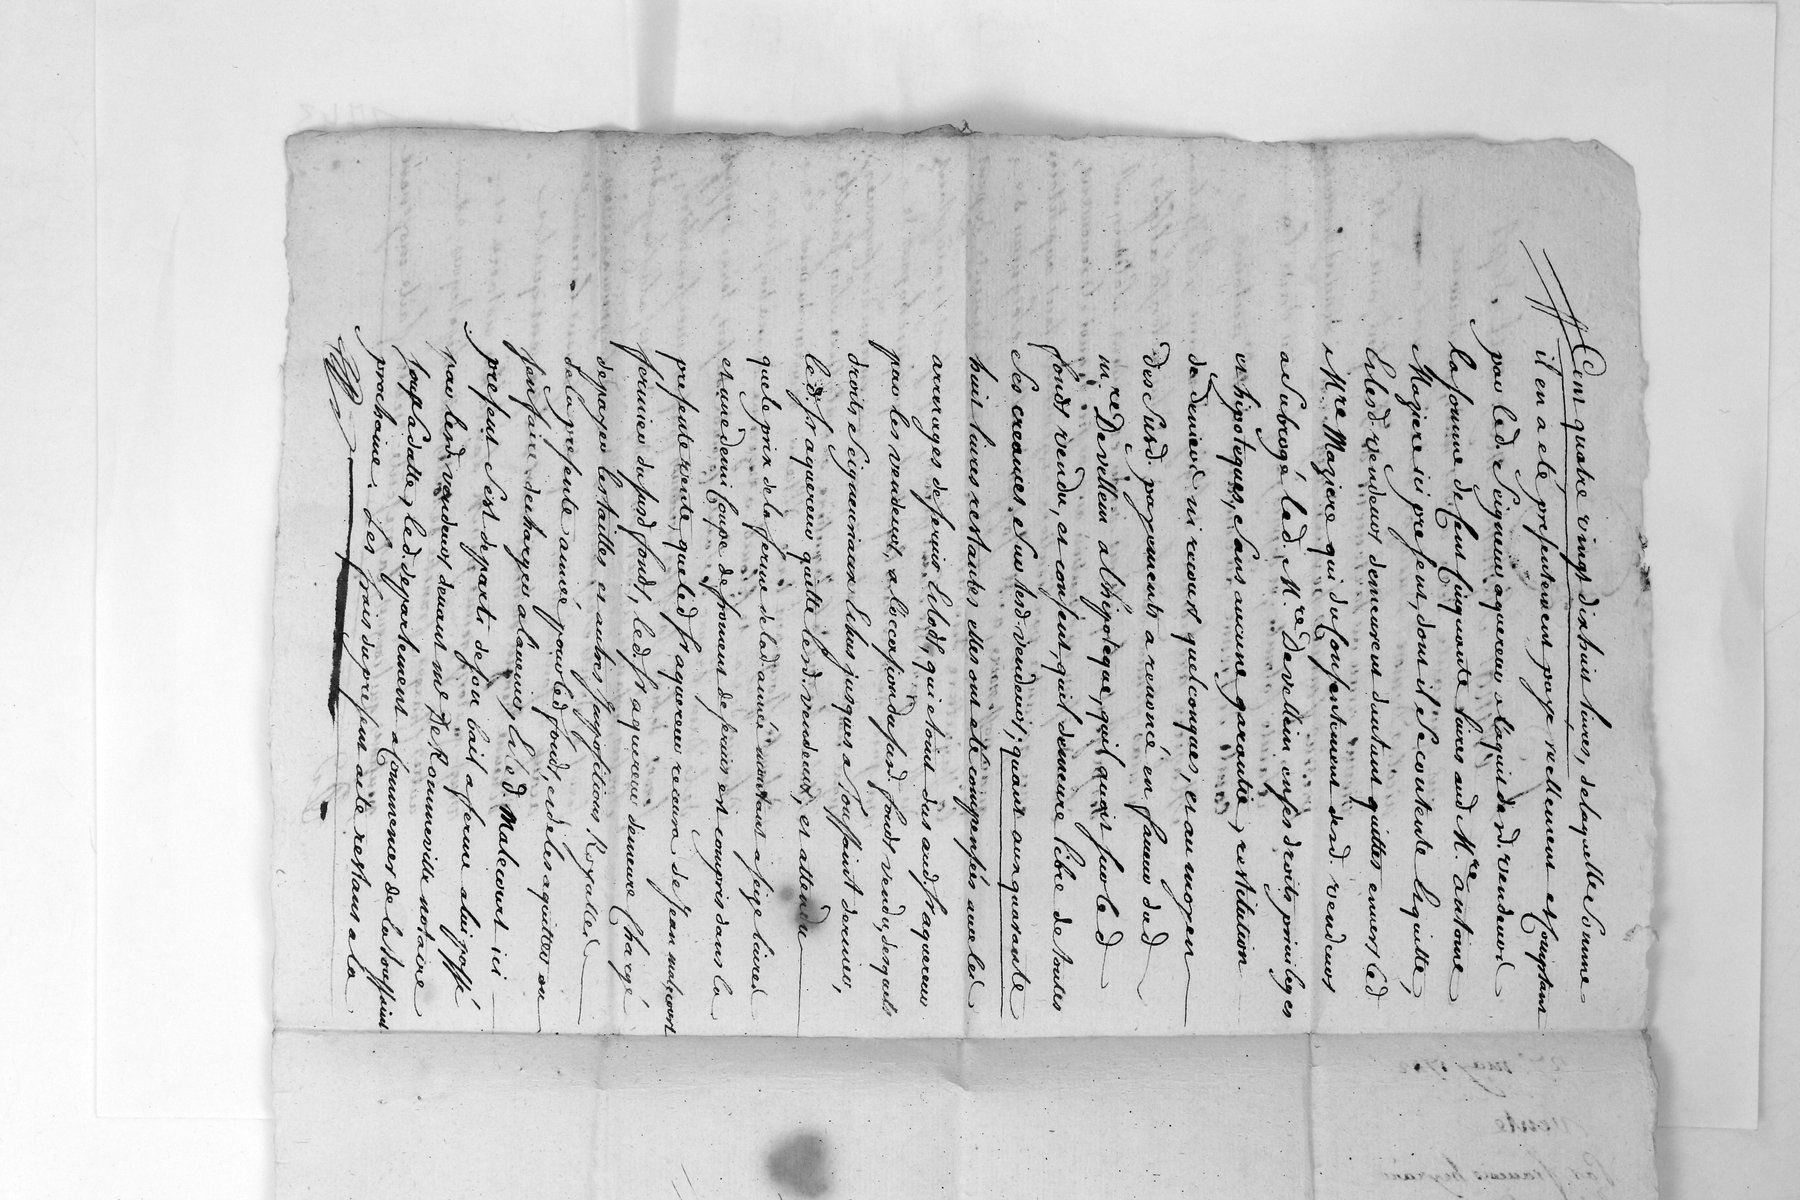 Cent quatre vingt dixhuit livres, de laquelle somme
il en a eté presentement payé reellement et comptant
par led. Seigneur aquereur a laquit desd. vendeurs
la somme de Cent Cinquante livres aud. Mre. antoine
Maziere ici present, dont il se contente et quitte,
et lesd. vendeurs demeurent dautant quittes envers led.
Mre Maziere qui du Consentement desd. vendeurs
a subrogé led. Mre. Devellein en ses droits privileges
et hipoteques, sans aucune garantie, restitution
de deniers ni recours quelconques, et au moyen
des susd. payements a renoncé en faveur dud.
mre Develleim a lhipoteque quil avoit sur led.
fonds vendu, et consent quil demeure libre de toutes
ses creances sur lesd. vendeurs; quant aux quarante
huit livres restantes elles ont eté compensées avec les
arrerages de servis et lods, qui etoient dus aud. sr. aquereur
par les vendeurs, a loccasion du susd. fonds vendu, desquels
droits seigneuriaux echus jusques a Toussaint dernier,
led. sr aquereur quitte lesd. vendeurs, et attendu
que le prix de la ferme de lad. année montant a seize livres
et une demi Coupe de froment de servis est compris dans la
presente vente, que led. sr aquereur recevra de Jean malecourt
fermier du susd fonds, led. sr aquereur demeure Chargé
de payer les tailles et autres Impositions Royalles
de la presente année pour led. fonds, et de les aquitter ou
sen faire decharger a lavenir, et led. Malecourt ici
present sest departi de son bail a ferme a lui passé
par lesd. vendeurs devant me De Ronneville notaire
sous sa datte, led. departement a Commencer de la toussaint
prochaine. Les frais du present acte restans a la
2e may 17
vente
Par francois